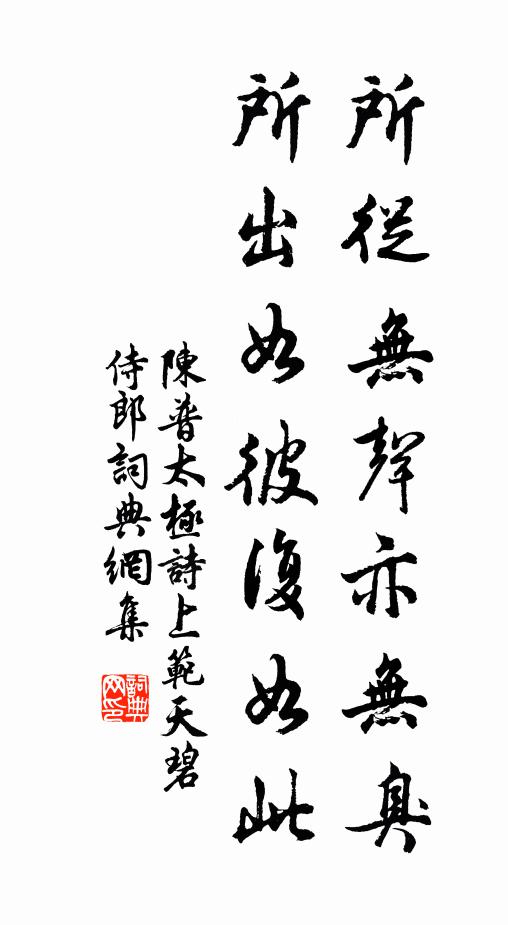 所從無聲亦無臭
所出如彼復如此
陳普太極詩上範天碧
侍郎詞典網集
詞典网印